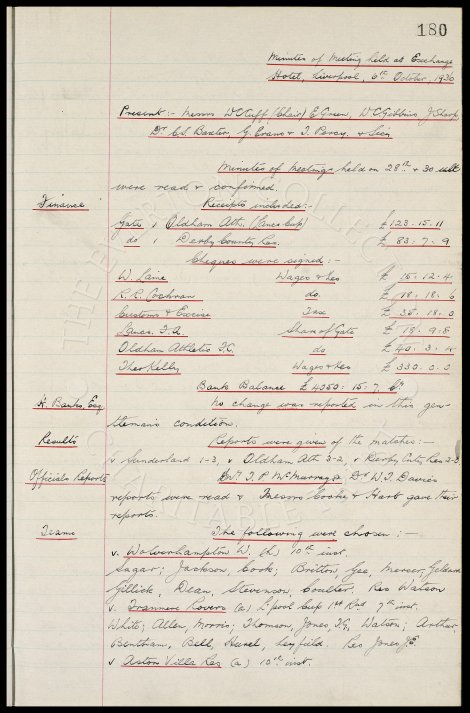 180
Minutes of Meeting held at Exchange
Hotel, Liverpool, 6th October, 1936
Present:- Messrs W.C. Cuff (Chair) E. Green, W.C. Gibbins, J. Sharp,
Dr. C.S. Baxter, G. Evans & T. Percy. & Secy
Minutes of Meetings held on 28th & 30 ult
were read & confirmed.
Finance
Receipts included:-
Gate, Oldham Ath. (Lancs Cup) £ 123.15.11
do, Derby County Res. £ 83.7.9
Cheques were signed:-
W. Laine Wages &c £ 15.12.4
R.R. Cochran do. £ 18.18.6
Customs & Excise Tax £ 35.18.0
Lancs. F.A. Share of Gate £ 18.9.8
Oldham Athletic F.C. do £ 40.3.
Theo Kelly Wages &c £ 330.0.0
Bank Balance £ 4050.15.7 Cr
H. Banks, Esq
No change was reported in this gen-
tleman's condition.
Results
Reports were given of the matches:-
v Sunderland 1-3, v Oldham Ath 3-2, v Derby Cnty Res 2-3
Officials Reports
T.P. McMurray Dr W.J. Davies
reports were read & Messrs Cooke & Hart gave their
reports.
Teams
The following were chosen:-
v. Wolverhampton W. (h) 10th inst.
Sagar; Jackson, Cook; Britton, Gee, Mercer; Geldard
Gillick, Dean, Stevenson, Coulter. Res Watson
v. Tranmere Rovers (a) L'pool Cup 1st Rnd 7th inst.
White; Allen, Morris; Thomson, Jones, T.G., Watson; Arthur,
Bentham, Bell, Hurel, Leyfield. Res Jones J.E.
v Aston Villa Res (a) 10th inst.